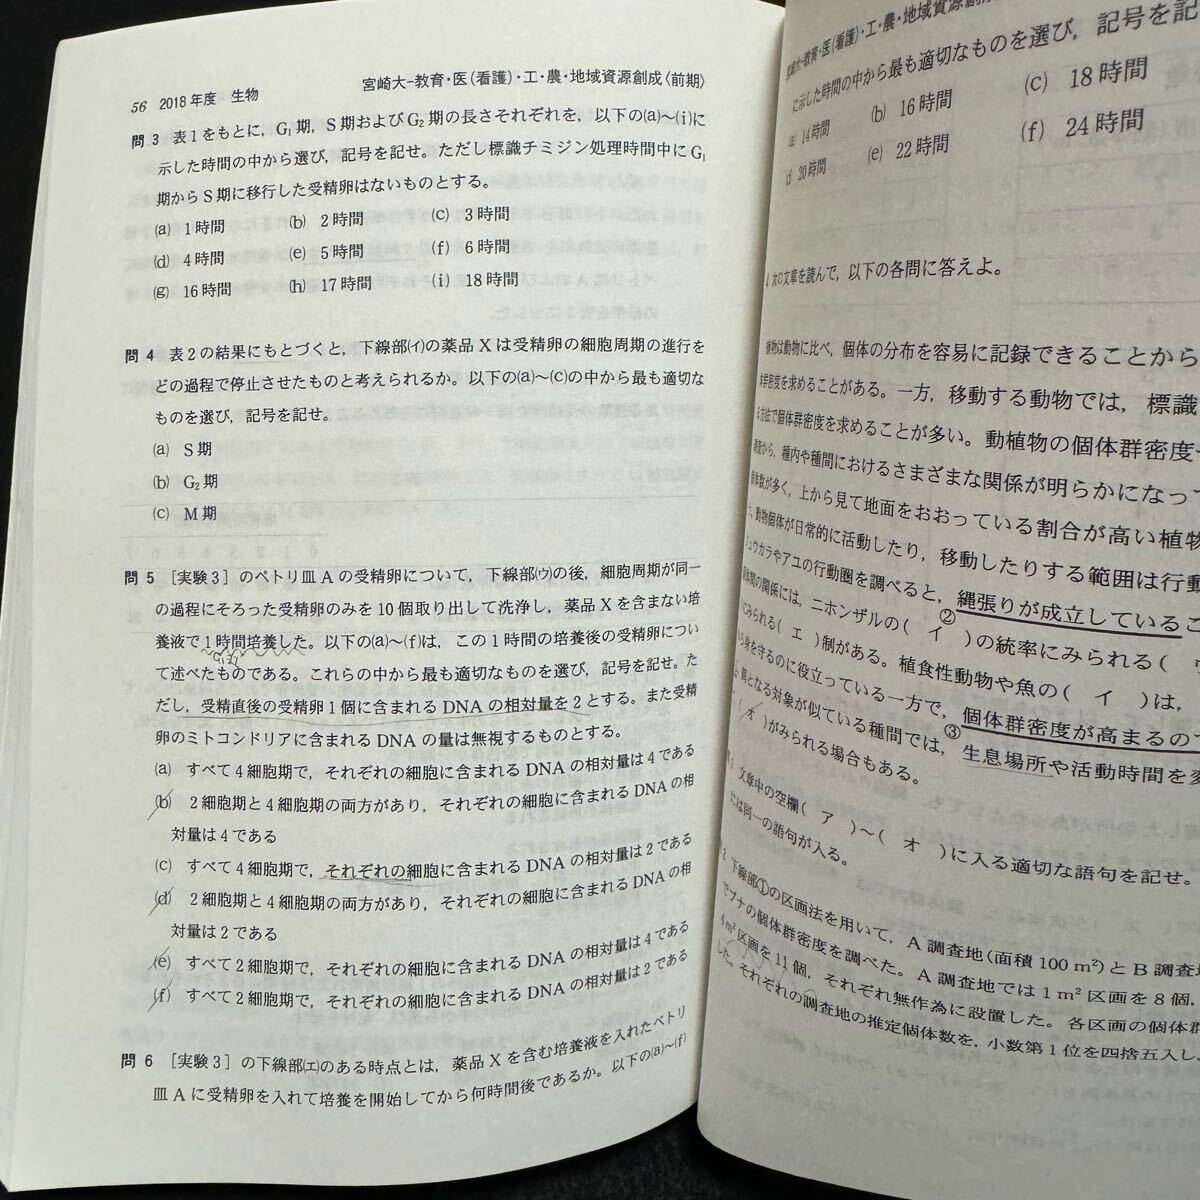 56 2018年度 生物
宮崎大-教育・医(看護)・工・農・地域資源創成〈前期〉
問 3 表1をもとに，G₁期，S期およびG₂期の長さそれぞれを，以下の(a)～(i)に
示した時間の中から選び，記号を記せ。ただし標識チミジン処理時間中にG₁
期からS期に移行した受精卵はないものとする。
(a) 1時間 (b) 2時間 (c) 3時間
(d) 4時間 (e) 5時間 (f) 6時間
(g) 16時間 (h) 17時間 (i) 18時間
問 4 表2の結果にもとづくと，下線部(イ)の薬品Xは受精卵の細胞周期の進行を
どの過程で停止させたものと考えられるか。以下の(a)～(c)の中から最も適切な
ものを選び，記号を記せ。
(a) S期
(b) G₂期
(c) M期
問 5 ［実験3］のペトリ皿Aの受精卵について，下線部(ウ)の後，細胞周期が同一
の過程にそろった受精卵のみを10個取り出して洗浄し，薬品Xを含まない培
養液で1時間培養した。以下の(a)～(f)は，この1時間の培養後の受精卵につい
て述べたものである。これらの中から最も適切なものを選び，記号を記せ。た
だし，受精直後の受精卵1個に含まれるDNAの相対量を2とする。また受精
卵のミトコンドリアに含まれるDNAの量は無視するものとする。
(a) すべて4細胞期で，それぞれの細胞に含まれるDNAの相対量は4である
(b) 2細胞期と4細胞期の両方があり，それぞれの細胞に含まれるDNAの相
対量は4である
(c) すべて4細胞期で，それぞれの細胞に含まれるDNAの相対量は2である
(d) 2細胞期と4細胞期の両方があり，それぞれの細胞に含まれるDNAの相
対量は2である
(e) すべて2細胞期で，それぞれの細胞に含まれるDNAの相対量は4である
(f) すべて2細胞期で，それぞれの細胞に含まれるDNAの相対量は2である
問 6 ［実験3］の下線部(エ)のある時点とは，薬品Xを含む培養液を入れたペトリ
皿Aに受精卵を入れて培養を開始してから何時間後であるか。以下の(a)～(f)
宮崎大-教育・医(看護)・工・農・地域資源創成
に示した時間の中から最も適切なものを選び，記号を記
(a) 14時間 (b) 16時間 (c) 18時間
(d) 20時間 (e) 22時間 (f) 24時間
4 次の文章を読んで，以下の各問に答えよ。
植物は動物に比べ，個体の分布を容易に記録できることから
体群密度を求めることがある。一方，移動する動物では，標識
る方法で個体群密度を求めることが多い。動植物の個体群密度
調査から，種内や種間におけるさまざまな関係が明らかになって
個体数が多く，上から見て地面をおおっている割合が高い植物
動物個体が日常的に活動したり，移動したりする範囲は行動
ジュウカラやアユの行動圏を調べると，縄張りが成立しているこ
②
個体間の関係には，ニホンザルの( イ )の統率にみられる(
にみられる( エ )制がある。植食性動物や魚の( イ )は，
ら身を守るのに役立っている一方で，個体群密度が高まるので
③
餌となる対象が似ている種間では，生息場所や活動時間を変
( オ )がみられる場合もある。
1 文章中の空欄( ア )～( オ )に入る適切な語句を記せ。
には同一の語句が入る。
2 下線部①の区画法を用いて，A調査地(面積100 m²)とB調査
でブナの個体群密度を調べた。A調査地では1 m²区画を8個，
4 m²区画を11個，それぞれ無作為に設置した。各区画の個体群
した。それぞれの調査地の推定個体数を，小数第1位を四捨五入し